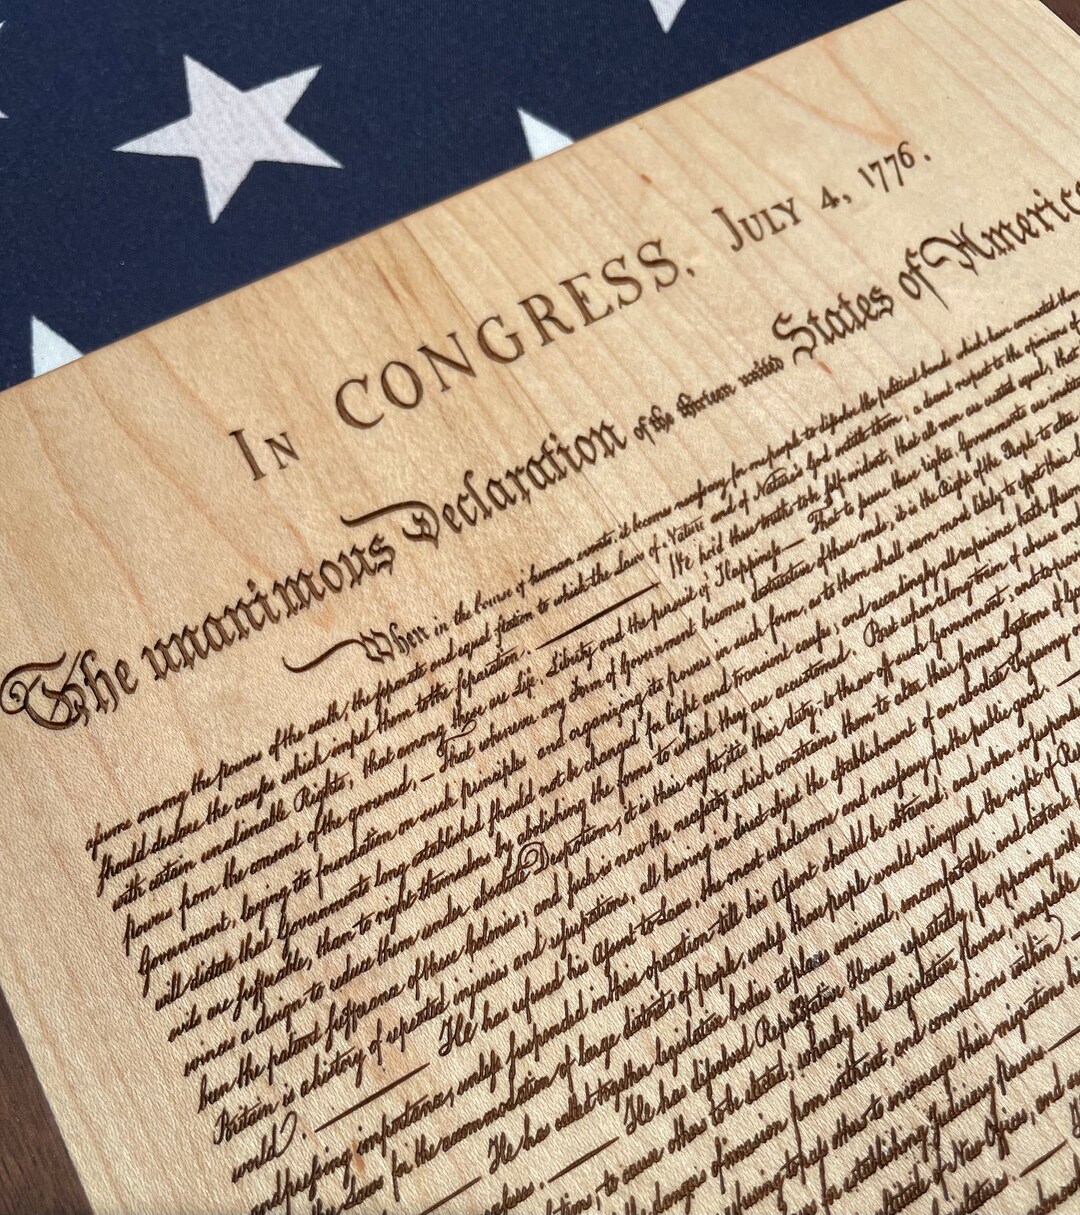 In CONGRESS. July 4, 1776.
The unanimous Declaration of the thirteen united States of America
When in the Course of human events, it becomes necessary for one people to dissolve the political bands which have connected them
assume among the powers of the earth, the separate and equal station to which the Laws of Nature and of Nature's God entitle them, a decent respect to the opinions of
should declare the causes which impel them to the separation. —— We hold these truths to be self-evident, that all men are created equal, that
with certain unalienable Rights, that among these are Life, Liberty and the pursuit of Happiness — That to secure these rights, Governments are
powers from the consent of the governed, — That whenever any Form of Government becomes destructive of these ends, it is the Right of the People to alter
Government, laying its foundation on such principles and organizing its powers in such form, as to them shall seem most likely to effect their
will dictate that Governments long established should not be changed for light and transient causes; and accordingly all experience hath shewn
evils are sufferable, than to right themselves by abolishing the forms to which they are accustomed. But when a long train of abuses and
evinces a design to reduce them under absolute Despotism, it is their right, it is their duty, to throw off such Government, and to
been the patient sufferance of these Colonies; and such is now the necessity which constrains them to alter their former Systems of
Britain is a history of repeated injuries and usurpations, all having in direct object the establishment of an absolute Tyranny
world. —— He has refused his Assent to Laws, the most wholesome and necessary for the public good. —
and pressing importance, unless suspended in their operation till his Assent should be obtained; and when so suspended
Laws for the accommodation of large districts of people, unless those people would relinquish the right of
He has called together legislative bodies at places unusual, uncomfortable, and distant
—— He has dissolved Representative Houses repeatedly, for opposing with
to cause others to be elected; whereby the Legislative Powers, incapable
the dangers of invasion from without, and convulsions within. —
to pass others to encourage their migrations
for establishing Judiciary powers. —
of New Offices, and